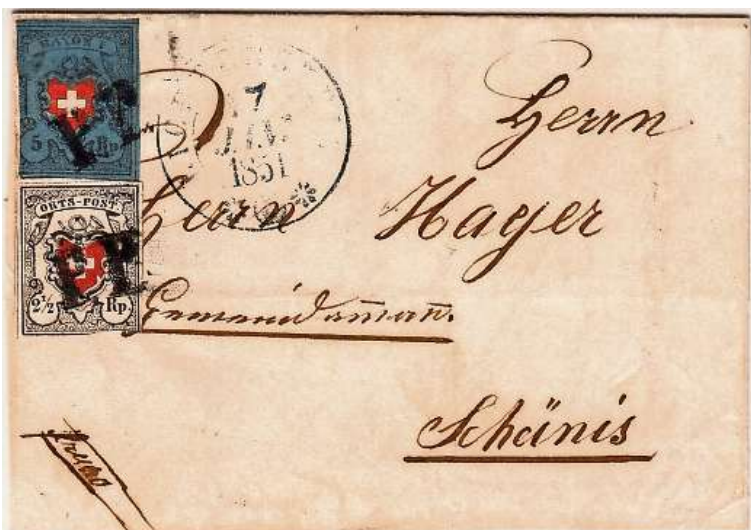 RAYON I
5 Rp
ORTS-POST
2 1/2 Rp
7
1851
Herrn
Herrn Hager
Gemeindamman.
Schänis